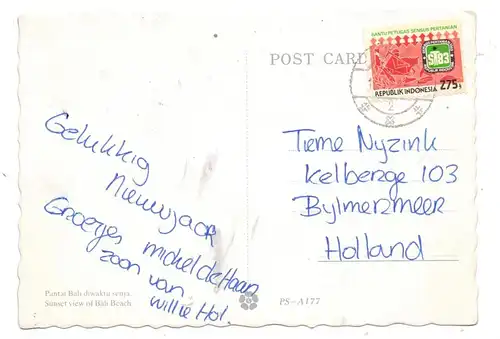 POST CARD
BANTU PETUGAS SENSUS PERTANIAN
ST83
REPUBLIK INDONESIA
275
Gelukkig
Nieuwjaar
Groetjes michel de Haan
zoon van
willie Hol.
Tieme Nyzink
Kelberge 103
Bylmermeer
Holland
Pantai Bali diwaktu senya.
Sunset view of Bali Beach
PS-A177